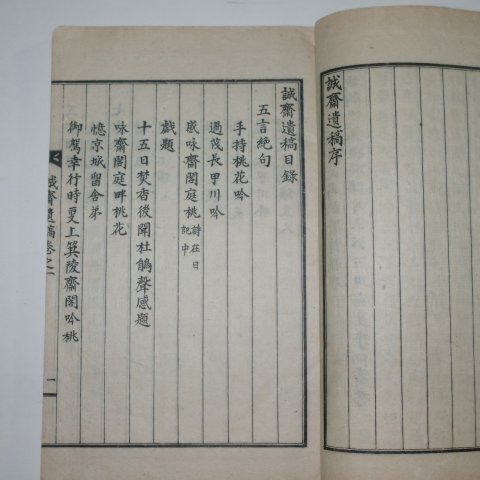 誠齋遺稿序
誠齋遺稿目錄
五言絶句
手持桃花吟
過茂長甲川吟
感咏齋閣庭桃 詩在日記中
戱題
十五日焚香後聞杜鵑聲感題
咏齋閣庭畔桃花
憶京城留舍弟
御駕幸行時更上箕陵齋閣吟桃
誠齋遺稿卷之一
一